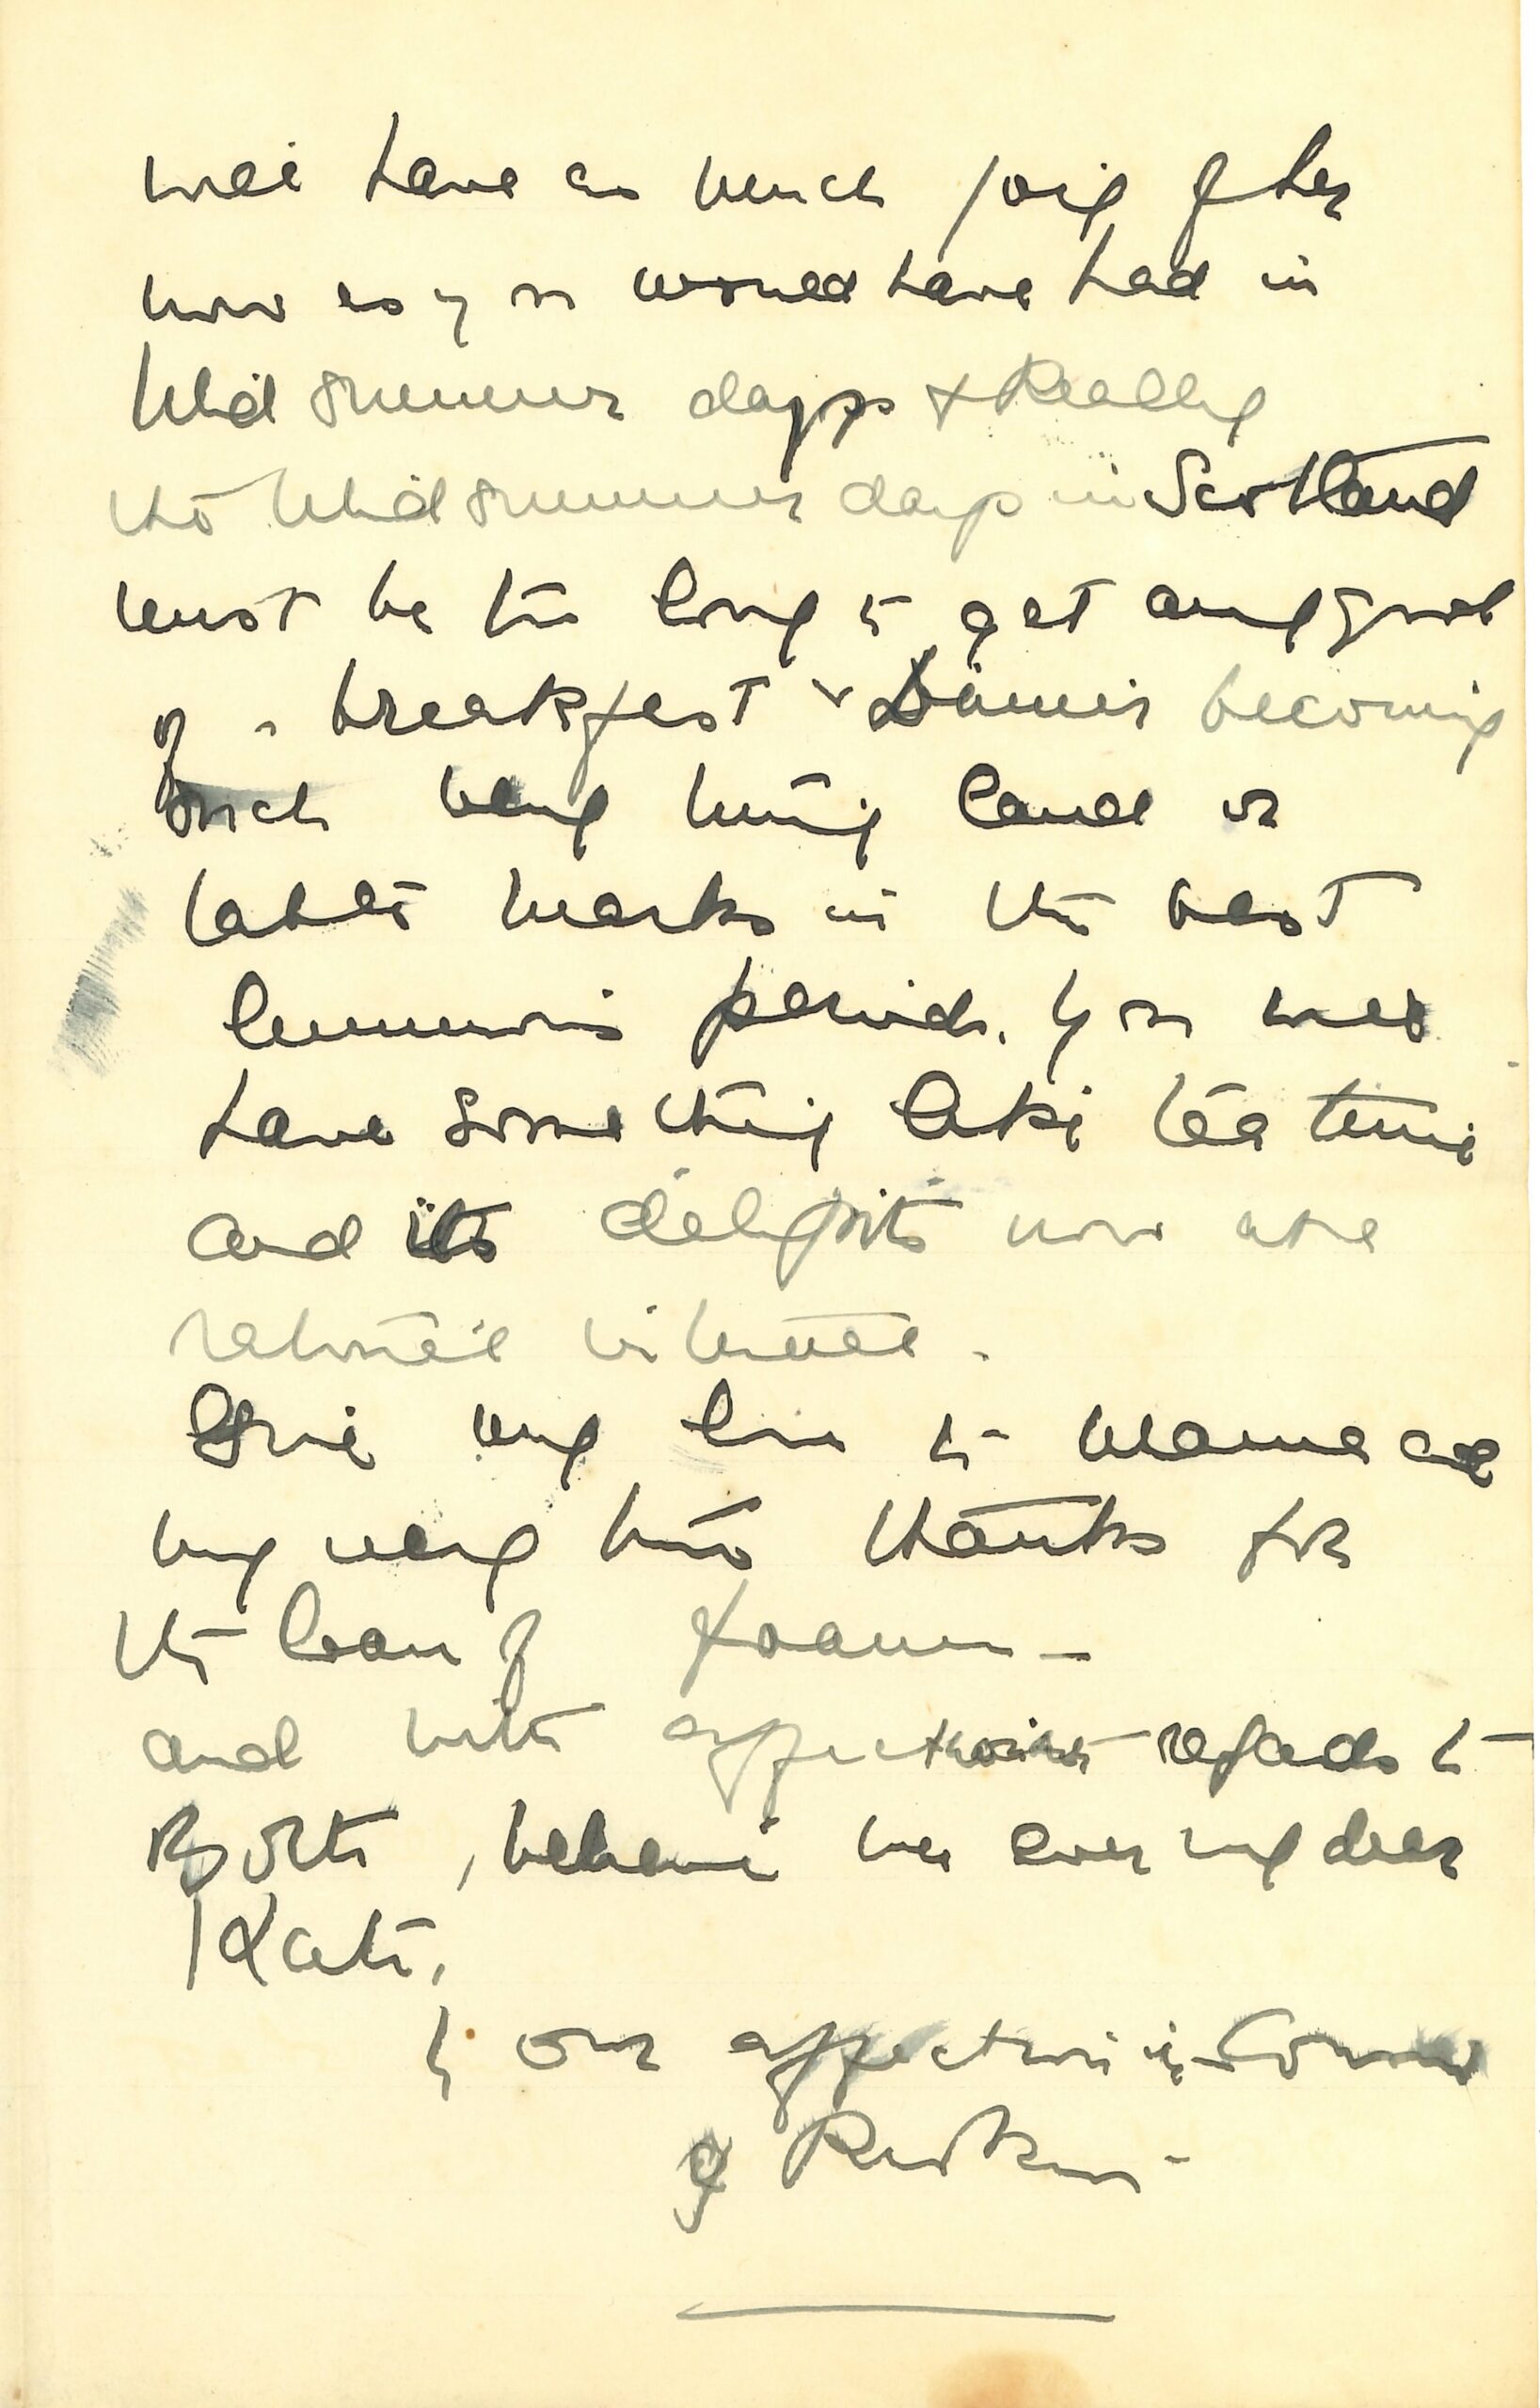 will have as much joy of her
now as you would have had in
Midsummer days & Really
the Midsummer days in Scotland
must be too long to get any good
of - breakfast & Dinner becoming
such very tiny land or
table marks in the vast
luminous periods. You will
have something like tea time
and its delights now are
retained
Give my love to Mama and
my very true thanks for
the loan of Joann -
and with affectionate regards to
Both, believe me ever my dear
Kate,
Your affectionate Cousin
J Ruskin -